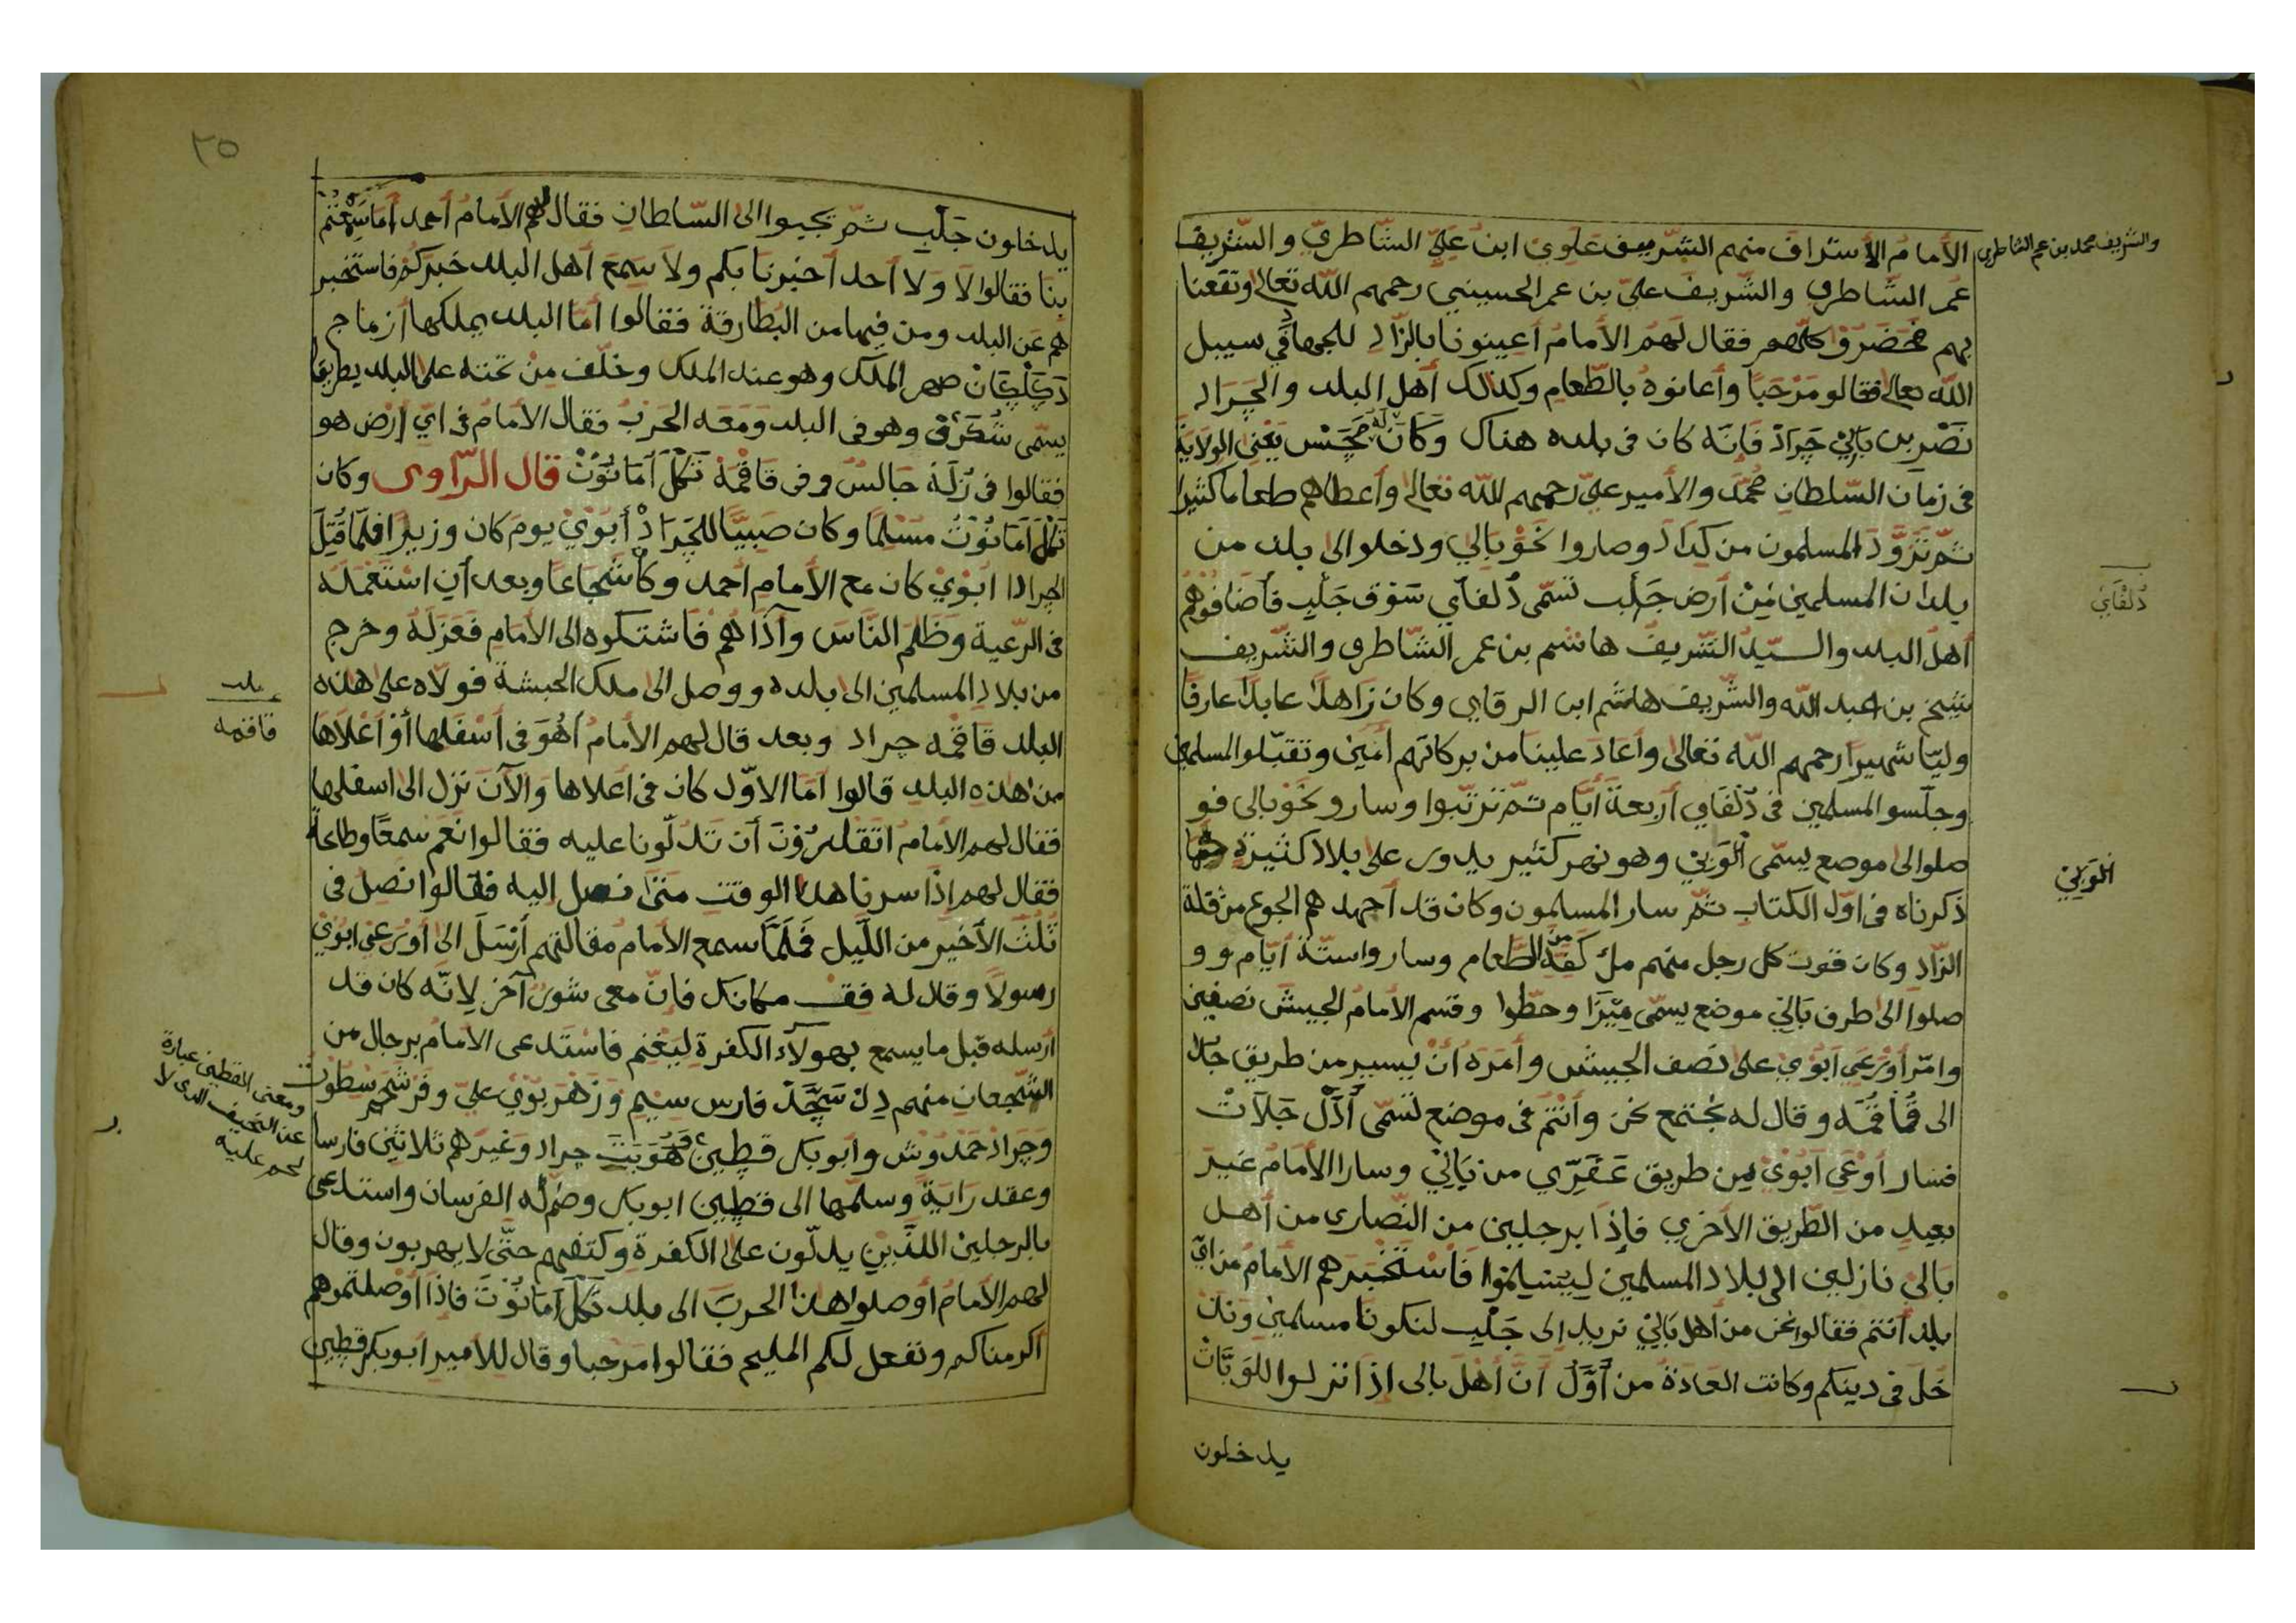 الأمام الأشراف منهم الشريف علوي ابن علي الشاطري والشريف
والشريف محمد بن عمر الشاطري
عمر الشاطري والشريف علي بن عمر الحسيني رحمهم الله تعالى ونفعنا
بهم فحضروا كلهم فقال لهم الأمام أعينونا بالزاد للجهاد في سبيل
الله تعالى فقالو مرحبا وأعانوه بالطعام وكذلك أهل البلد والجراد
نصر بن بالي جراد فإنه كان في بلده هناك وكان له يعني الولاية
في زمان السلطان محمد والأمير علي رحمهم الله تعالى وأعطاهم طعاما كثيرا
ثم تزود المسلمون من كداد وصاروا نحو بالي ودخلو الى بلد من
بلدان المسلمين من أرض جلب تسمى دلفاي سوق جلب فأضافوهم
دلفاي
أهل البلد والسيد الشريف هاشم بن عمر الشاطري والشريف
شيخ بن عبد الله والشريف هاشم ابن الرقابي وكان زاهدا عابدا عارفا
وليا شهيرا رحمهم الله تعالى وأعاد علينا من بركاتهم أمين وتقبلو المسلمين
وجلسو المسلمين في دلفاي أربعة أيام ثم ترتبوا وسارو نحو بالي فو
صلوا الى موضع يسمى الوبي وهو نهر كبير يدور على بلاد كثيرة كما
الوبي
ذكرناه في اول الكتاب ثم سار المسلمون وكان قد أجهدهم الجوع من قلة
الزاد وكان قوت كل رجل منهم مل كفه من الطعام وسار واستة أيام وو
صلوا الى طرف بالي موضع يسمى ميزا وحطوا وقسم الامام الجيش نصفين
وامر أورعي ابوي على نصف الجيش وأمره أن يسير من طريق جلا
الى قاقمه وقال له نجتمع نحن وأنتم في موضع تسمى أدل جلات
فسار أورعي ابوي من طريق عقري من بالي وسار الأمام غير
بعيد من الطريق الأخري فإذا برجلين من النصارى من أهل
بالي نازلين الى بلاد المسلمين ليتسلموا فاستخبرهم الأمام من اي
بلد أنتم فقالوا نحن من أهل بالي نريد إلى جلب لنكونا مسلمين وند
خل في دينكم وكانت العادة من أول أن أهل بالي إذا نزلوا للوبات
يدخلون
٢٥
يدخلون جلب ثم تجيوا الى السلطان فقال لهم الأمام أحمد أما سمعتم
بنا فقالوا لا ولا أحد أخبرنا بكم ولا سمع أهل البلد خبركم فاستخبر
هم عن البلد ومن فيها من البطارقة فقالوا أما البلد يملكها أزماج
دكلحان صهر الملك وهو عند الملك وخلف من تحته على البلد بطريقا
يسمى شكرق وهو في البلد ومعه الحرب فقال الأمام في أي أرض هو
فقالوا في نزلة جالس وفي قاقمة تكل آمانوت قال الراوي وكان
تكل آمانوت مسلما وكان صبيا للجراد أبوي يوم كان وزيرا فلما قتل
الجراد ابوي كان مع الأمام أحمد وكان شجاعا وبعد أن استعمله
في الرعية وظلم الناس وآذاهم فاشتكوه الى الأمام فعزله وخرج
من بلاد المسلمين الى بلده ووصل الى ملك الحبشة فولاه على هذه
بلد
قاقمه
البلد قاقمه جراد وبعد قال لهم الأمام أهو في أسفلها أو أعلاها
من هذه البلد قالوا أما الاول كان في اعلاها والآن نزل الى اسفلها
فقال لهم الأمام اتقدرون أن تدلونا عليه فقالوا نعم سمعا وطاعة
فقال لهم إذا سرنا هذا الوقت متى نصل إليه فقالوا نصل في
ثلث الأخير من الليل فلما سمع الأمام مقالتهم أرسل الى أورعي ابوي
رسولا وقال له قف مكانك فإن معي شور آخر لانه كان قد
أرسله قبل ما يسمع بهولاء الكفرة ليغنم فاستدعى الامام برجال من
الشجعان منهم دل سجد فارس سيم وزهربوي علي وفرشحم سطوت
وجراد حمدوش وأبوبكر قطين وهو بنت جراد وغيرهم ثلاثين فارسا
ومعنى القطين عبارة
عن النحيف الذي لا
لحم عليه
وعقد راية وسلمها الى قطين ابوبكر وضم له الفرسان واستدعى
بالرجلين اللذين يدلون على الكفرة وكتفهم حتى لا يهربون وقال
لهم الأمام أوصلوا هذا الحرب الى بلد تكل آمانوت فاذا أوصلتموهم
أكرمناكم ونفعل لكم المليح فقالوا مرحبا وقال للأمير أبوبكر قطين